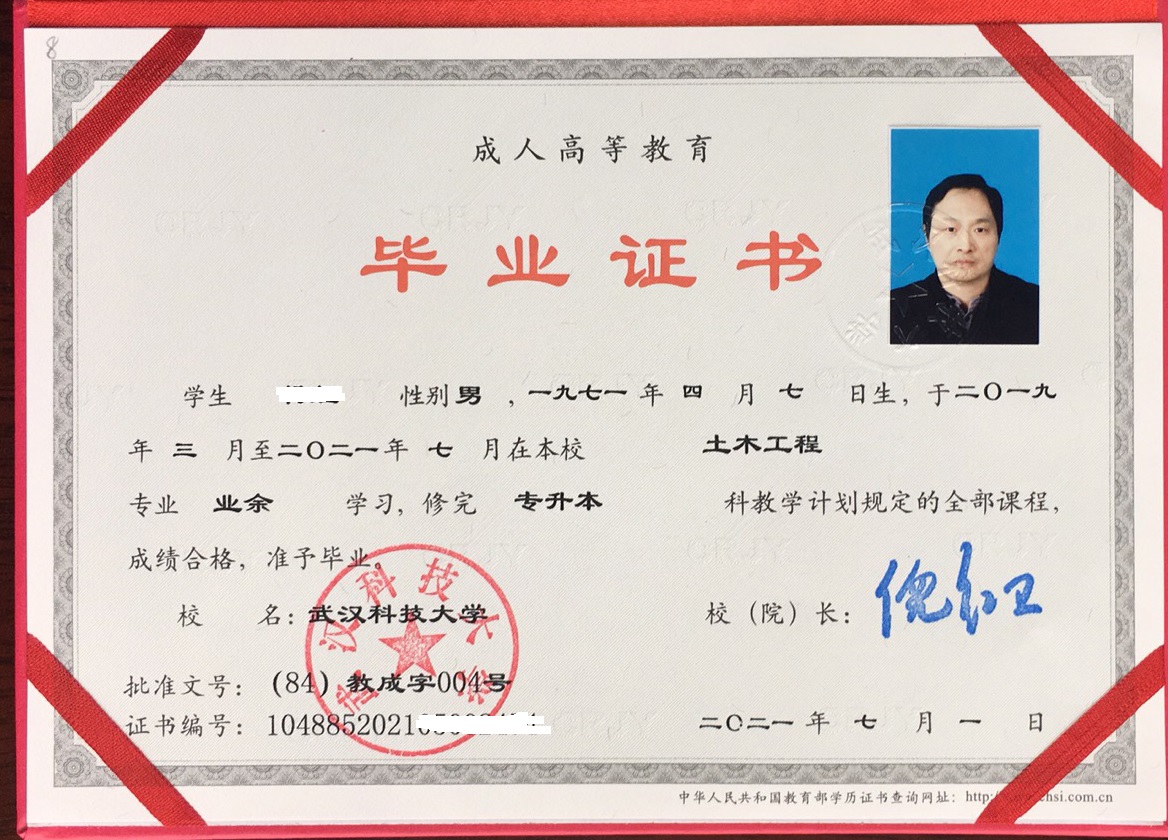 8
成人高等教育
毕业证书
学生 性别男，一九七一年四月七日生，于二〇一九
年三月至二〇二一年七月在本校 土木工程
专业 业余 学习，修完 专升本 科教学计划规定的全部课程，
成绩合格，准予毕业。
校 名：武汉科技大学 校（院）长：倪红卫
武汉科技大学
批准文号：（84）教成字004号
证书编号：104885202105 二〇二一年七月一日
中华人民共和国教育部学历证书查询网址：http://www.chsi.com.cn